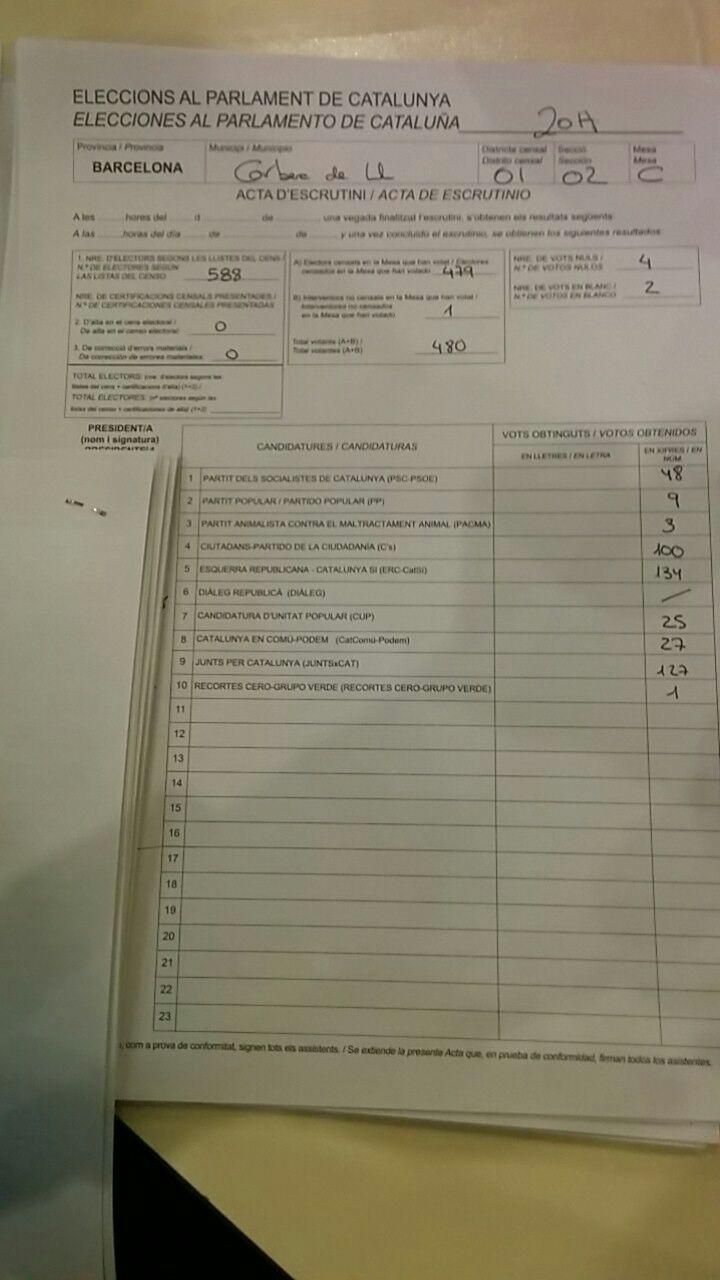 ELECCIONS AL PARLAMENT DE CATALUNYA
ELECCIONES AL PARLAMENTO DE CATALUÑA
Província / Provincia
BARCELONA
Municipi / Municipio
Corbera de Ll
Districte censal
Distrito censal
01
Secció
Sección
02
Mesa
Mesa
C
ACTA D'ESCRUTINI / ACTA DE ESCRUTINIO
A les hores del d de , una vegada finalitzat l'escrutini, s'obtenen els resultats següents:
A las horas del día de de y una vez concluido el escrutinio, se obtienen los siguientes resultados:
1. NRE. D'ELECTORS SEGONS LES LLISTES DEL CENS /
N.º DE ELECTORES SEGÚN
LAS LISTAS DEL CENSO 588
NRE. DE CERTIFICACIONS CENSALS PRESENTADES /
N.º DE CERTIFICACIONES CENSALES PRESENTADAS
2. D'alta en el cens electoral /
De alta en el censo electoral: 0
3. De correcció d'errors materials /
De corrección de errores materiales: 0
TOTAL ELECTORS: (nre. d'electors segons les
llistes del cens + certificacions d'alta) (1+2) /
TOTAL ELECTORES: (nº electores según las
listas del censo + certificaciones de alta) (1+2)
A) Electors censats en la Mesa que han votat / Electores
censados en la Mesa que han votado 479
B) Interventors no censats en la Mesa que han votat /
Interventores no censados
en la Mesa que han votado 1
Total votants (A+B) /
Total votantes (A+B) 480
NRE. DE VOTS NULS /
N.º DE VOTOS NULOS 4
NRE. DE VOTS EN BLANC /
N.º DE VOTOS EN BLANCO 2
PRESIDENT/A
(nom i signatura)
CANDIDATURES / CANDIDATURAS
VOTS OBTINGUTS / VOTOS OBTENIDOS
EN LLETRES / EN LETRA
EN XIFRES / EN
NÚM.
1 PARTIT DELS SOCIALISTES DE CATALUNYA (PSC-PSOE) 48
2 PARTIT POPULAR / PARTIDO POPULAR (PP) 9
3 PARTIT ANIMALISTA CONTRA EL MALTRACTAMENT ANIMAL (PACMA) 3
4 CIUTADANS-PARTIDO DE LA CIUDADANÍA (C's) 100
5 ESQUERRA REPUBLICANA - CATALUNYA SÍ (ERC-CatSí) 134
6 DIÀLEG REPUBLICÀ (DIÀLEG) /
7 CANDIDATURA D'UNITAT POPULAR (CUP) 25
8 CATALUNYA EN COMÚ-PODEM (CatComú-Podem) 27
9 JUNTS PER CATALUNYA (JUNTSxCAT) 127
10 RECORTES CERO-GRUPO VERDE (RECORTES CERO-GRUPO VERDE) 1
11
12
13
14
15
16
17
18
19
20
21
22
23
, com a prova de conformitat, signen tots els assistents. / Se extiende la presente Acta que, en prueba de conformidad, firman todos los asistentes.